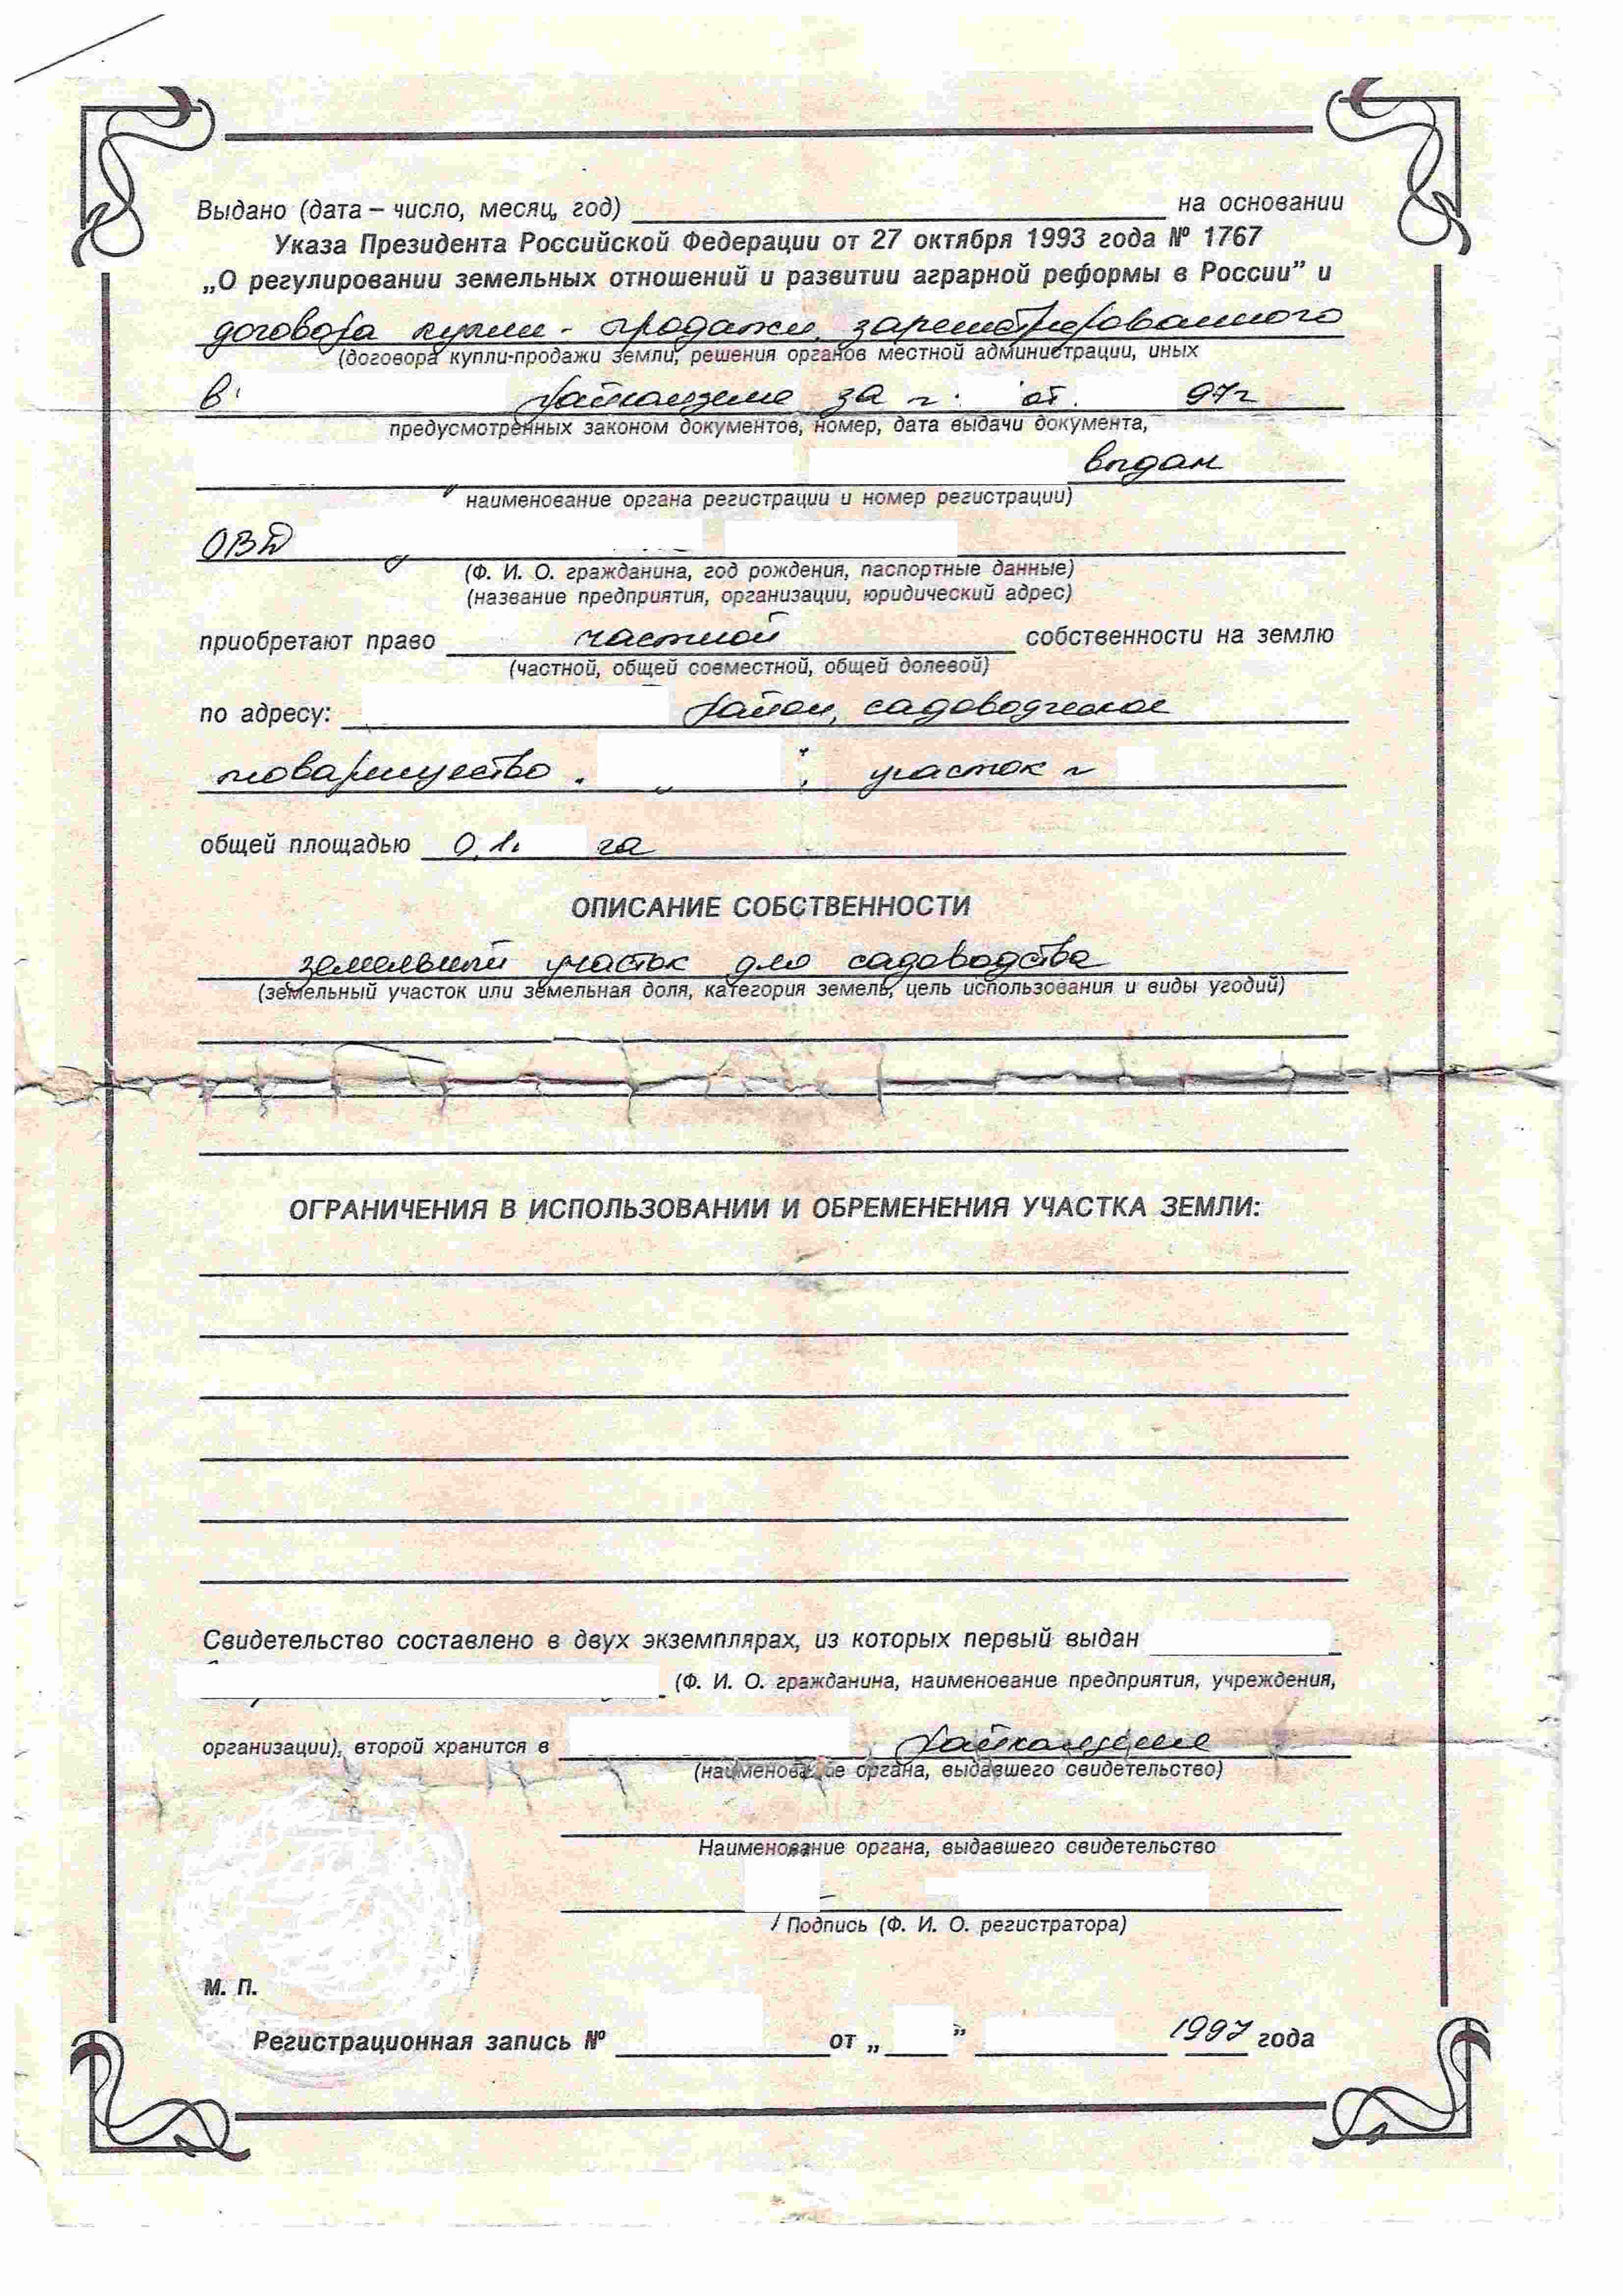 Выдано (дата – число, месяц, год) на основании
Указа Президента Российской Федерации от 27 октября 1993 года № 1767
„О регулировании земельных отношений и развитии аграрной реформы в России” и
договора купли-продажи, зарегистрированного
(договора купли-продажи земли, решения органов местной администрации, иных
в райкомземе за № от 97г
предусмотренных законом документов, номер, дата выдачи документа,
выдан
наименование органа регистрации и номер регистрации)
ОВД
(Ф. И. О. гражданина, год рождения, паспортные данные)
(название предприятия, организации, юридический адрес)
приобретают право частной собственности на землю
(частной, общей совместной, общей долевой)
по адресу: район, садоводческое
товарищество участок №
общей площадью 0,1 га
ОПИСАНИЕ СОБСТВЕННОСТИ
земельный участок для садоводства
(земельный участок или земельная доля, категория земель, цель использования и виды угодий)
ОГРАНИЧЕНИЯ В ИСПОЛЬЗОВАНИИ И ОБРЕМЕНЕНИЯ УЧАСТКА ЗЕМЛИ:
Свидетельство составлено в двух экземплярах, из которых первый выдан
(Ф. И. О. гражданина, наименование предприятия, учреждения,
организации), второй хранится в райкомземе
(наименование органа, выдавшего свидетельство)
Наименование органа, выдавшего свидетельство
Подпись (Ф. И. О. регистратора)
М. П.
Регистрационная запись № от „ ” 1997 года